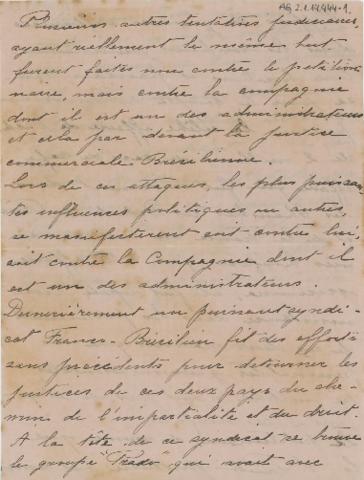 AG 2.1.14.444-1.
Plusieurs autres tentatives judiciaires,
ayant réellement le même but
furent faites non contre le pétition-
naire, mais contre la compagnie
dont il est un des administrateurs
et cela par devant la justice
commerciale Brésilienne.
Lors de ces attaques, les plus puissan-
tes influences politiques ou autres,
se manifestèrent soit contre lui,
soit contre la Compagnie dont il
est un des administrateurs.
Dernièrement un puissant syndi-
cat Franco-Brésilien fit des efforts
sans précédents pour détourner les
justices de ces deux pays du che-
min de l'impartialité et du droit.
A la tête de ce syndicat se trouve
le groupe qui avait avec